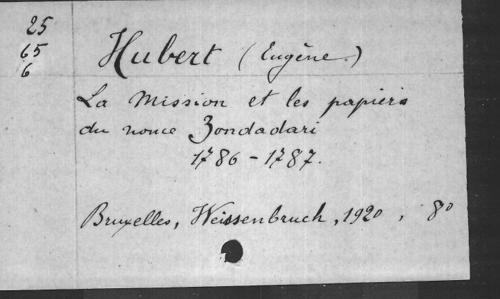 25
65
6
Hubert (Eugène.)
La Mission et les papiers
du nonce Zondadari
1786-1787.
Bruxelles, Weissenbruch, 1920, 8°